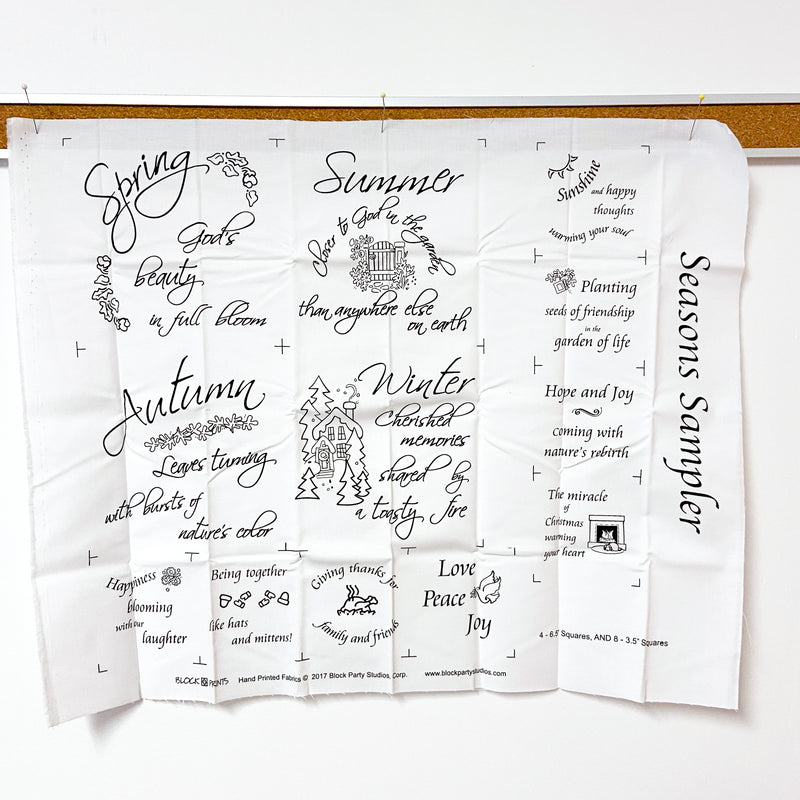 Spring
God's
beauty
in full bloom
Summer
Closer to God in the garden
than anywhere else
on earth
Sunshine
and happy
thoughts
warming your soul
Planting
seeds of friendship
in the
garden of life
Autumn
Leaves turning
with bursts of
nature's color
Winter
Cherished
memories
shared by
a toasty fire
Hope and Joy
coming with
nature's rebirth
The miracle
of
Christmas
warming
your heart
Seasons Sampler
Happiness
blooming
with our
laughter
Being together
like hats
and mittens!
Giving thanks for
family and friends
Love
Peace
Joy
4 - 6.5" Squares, AND 8 - 3.5" Squares
BLOCK PRINTS Hand Printed Fabrics © 2017 Block Party Studios, Corp. www.blockpartystudios.com